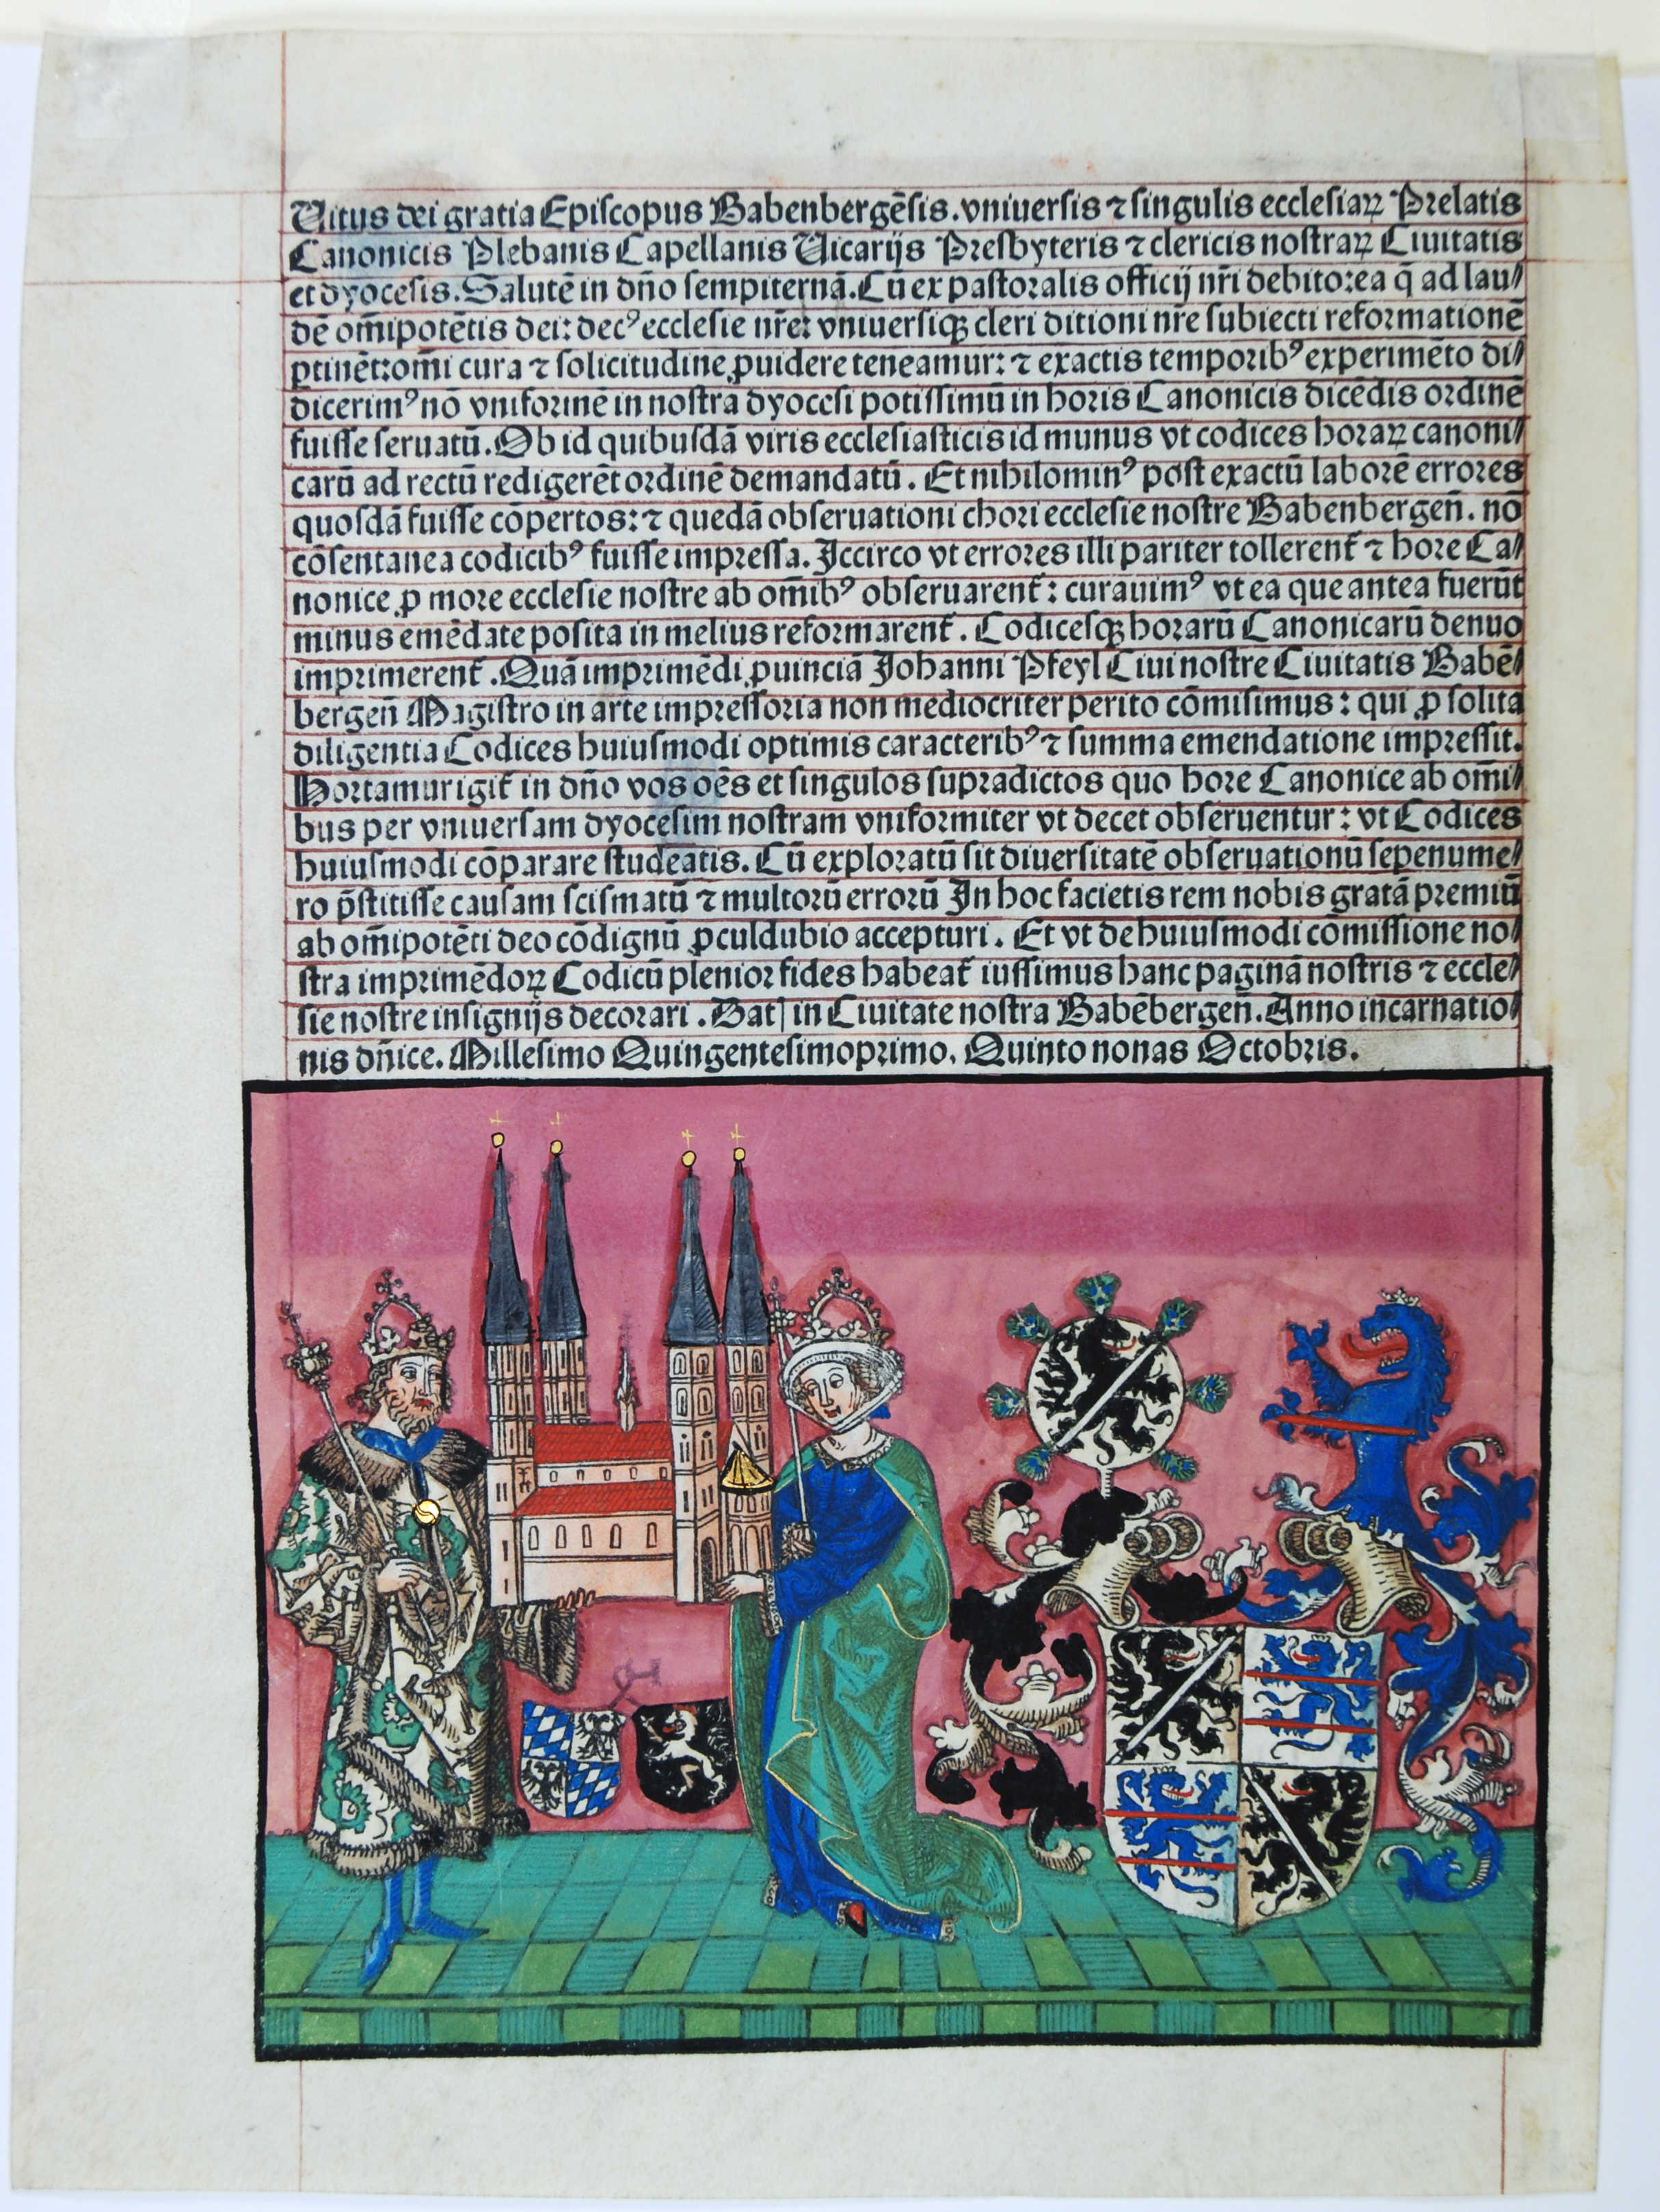 Uitus dei gratia Episcopus Babenbergēsis. vniuersis ⁊ singulis ecclesiaꝝ Prelatis
Canonicis Plebanis Capellanis Uicarijs Presbyteris ⁊ clericis nostraꝝ Ciuitatis
et dyocesis. Salutē in dn̄o sempiternā. Cū ex pastoralis officij nr̄i debito: ea q̄ ad lau⸗
dē om̄ipotētis dei: decꝰ ecclesie nr̄e: vniuersiqꝫ cleri ditioni nr̄e subiecti reformationē
ꝑtinēt: om̄i cura ⁊ solicitudine ꝓuidere teneamur: ⁊ exactis temporibꝰ experimēto di⸗
dicerimꝰ nō vniformē in nostra dyocesi potissimū in horis Canonicis dicēdis ordinē
fuisse seruatū. Ob id quibusdā viris ecclesiasticis id munus vt codices horaꝝ canoni⸗
carū ad rectū redigerēt ordinē demandatū. Et nihilominꝰ post exactū laborē errores
quosdā fuisse cōpertos: ⁊ quedā obseruationi chori ecclesie nostre Babenbergen̄. nō
cōsentanea codicibꝰ fuisse impressa. Iccirco vt errores illi pariter tollerent̄ ⁊ hore Ca⸗
nonice ꝓ more ecclesie nostre ab om̄ibꝰ obseruarent̄: curauimꝰ vt ea que antea fuerūt
minus emēdate posita in melius reformarent̄. Codicesqꝫ horarū Canonicarū denuo
imprimerent̄. Quā imprimēdi ꝓuinciā Johanni Pfeyl Ciui nostre Ciuitatis Babē⸗
bergen̄ Magistro in arte impressoria non mediocriter perito cōmisimus: qui ꝓ solita
diligentia Codices huiusmodi optimis caracteribꝰ ⁊ summa emendatione impressit.
Hortamur igit̄ in dn̄o vos oēs et singulos supradictos quo hore Canonice ab om̄i⸗
bus per vniuersam dyocesim nostram vniformiter vt decet obseruentur: vt Codices
huiusmodi cōparare studeatis. Cū exploratū sit diuersitatē obseruationū sepenume⸗
ro p̄stitisse causam scismatū ⁊ multorū errorū In hoc facietis rem nobis gratā premiū
ab om̄ipotēti deo cōdignū ꝓculdubio accepturi. Et vt de huiusmodi cōmissione no⸗
stra imprimēdoꝝ Codicū plenior fides habeat̄ iussimus hanc paginā nostris ⁊ eccle⸗
sie nostre insignijs decorari. Datꝭ in Ciuitate nostra Babēbergen̄. Anno incarnatio⸗
nis dn̄ice. Millesimo Quingentesimoprimo. Quinto nonas Octobris.